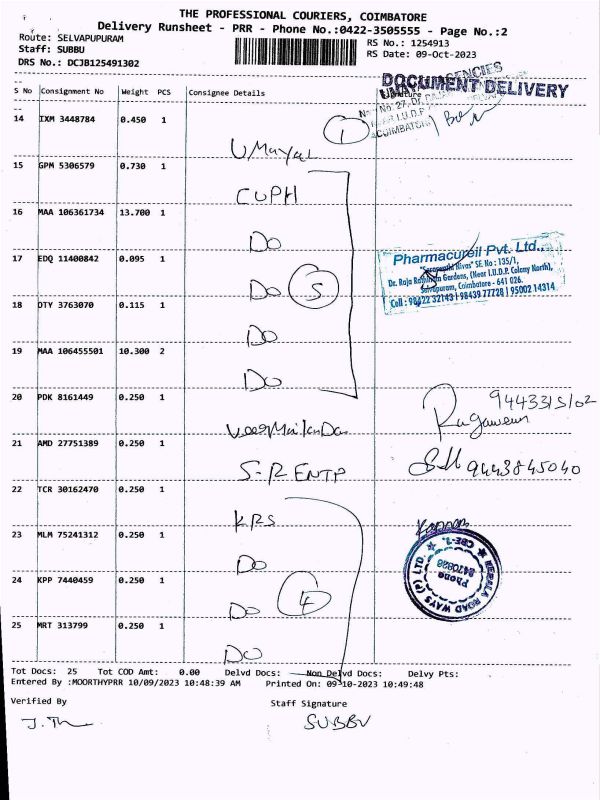 THE PROFESSIONAL COURIERS, COIMBATORE
Delivery Runsheet - PRR - Phone No.:0422-3505555 - Page No.:2
Route: SELVAPUPURAM
RS No.: 1254913
Staff: SUBBU
RS Date: 09-Oct-2023
DRS No.: DCJB125491302
S No Consignment No Weight PCS Consignee Details Signature
DOCUMENT DELIVERY
14 IXM 3448784 0.450 1 Umayal 1
15 GPM 5306579 0.730 1 CUPH
16 MAA 106361734 13.700 1 Do
17 EDQ 11400842 0.095 1 Do 5
Pharmacureil Pvt. Ltd.,
"Saraswathi Nivas" SF. No : 135/1,
Dr. Raja Rathinam Gardens, (Near I.U.D.P. Colony North),
Selvapuram, Coimbatore - 641 026.
Cell : 98422 32143 | 98439 77728 | 95002 14314
18 DTY 3763070 0.115 1 Do
19 MAA 106455501 10.300 2 Do
20 PDK 8161449 0.250 1
21 AMD 27751389 0.250 1 S-R ENTP 9443845040
22 TCR 30162470 0.250 1 KRS
23 MLM 75241312 0.250 1 Do
NEPALA ROAD WAYS (P) LTD.
CBE-1.
Phone
24 KPP 7440459 0.250 1 Do 4
25 MRT 313799 0.250 1 Do
Tot Docs: 25 Tot COD Amt: 0.00 Delvd Docs: Non Delvd Docs: Delvy Pts:
Entered By :MOORTHYPRR 10/09/2023 10:48:39 AM Printed On: 09-10-2023 10:49:48
Verified By Staff Signature
SUBBU